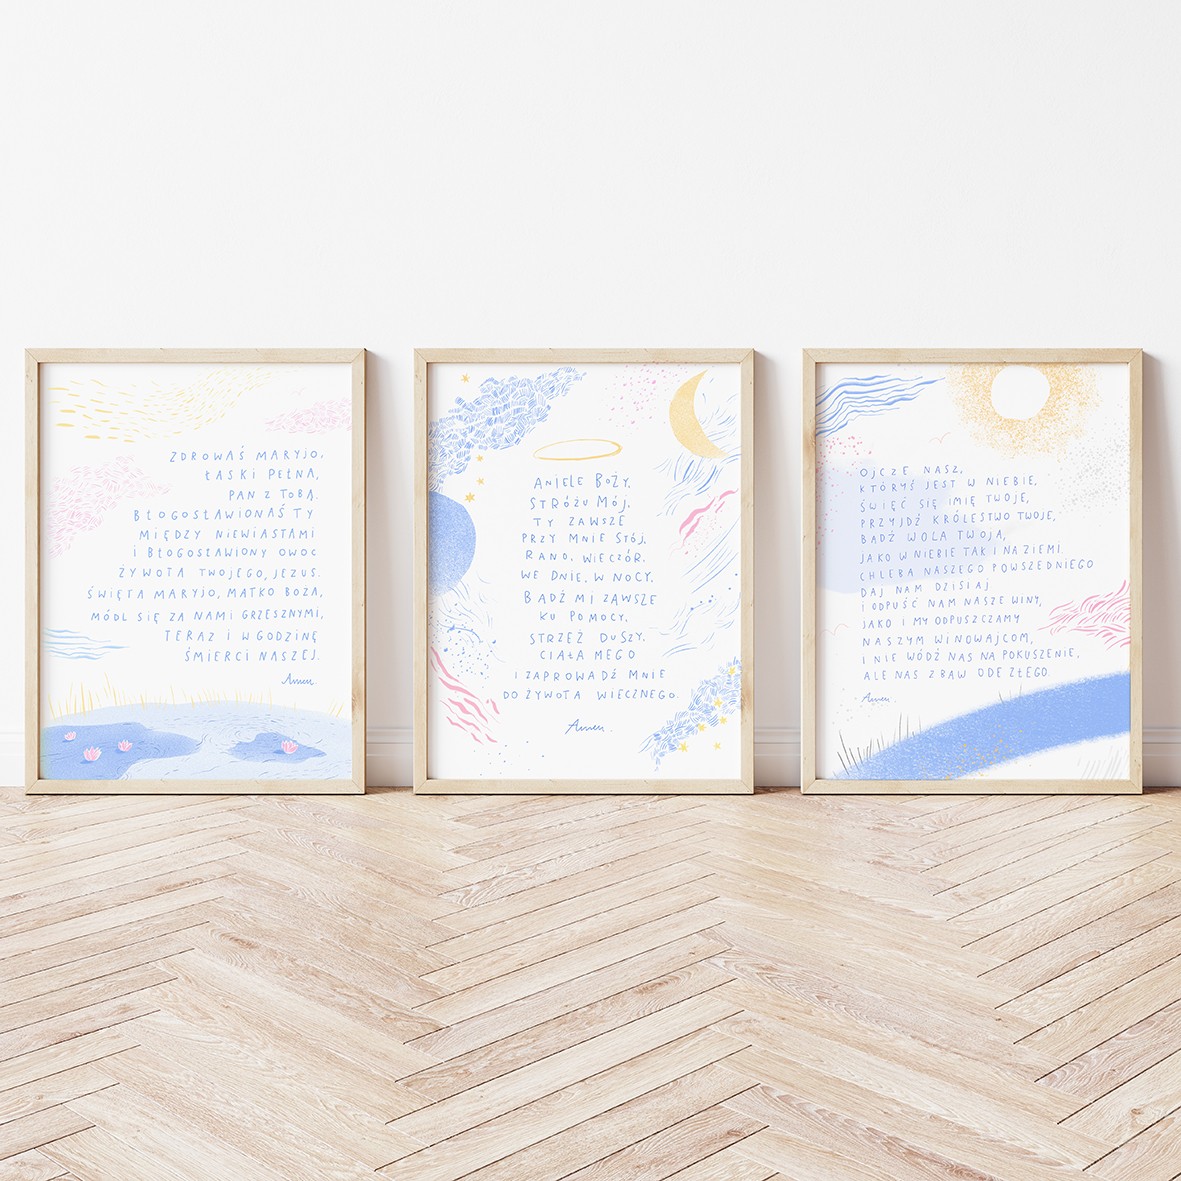 ZDROWAŚ MARYJO,
ŁASKI PEŁNA,
PAN Z TOBĄ.
BŁOGOSŁAWIONAŚ TY
MIĘDZY NIEWIASTAMI
I BŁOGOSŁAWIONY OWOC
ŻYWOTA TWOJEGO, JEZUS.
ŚWIĘTA MARYJO, MATKO BOŻA,
MÓDL SIĘ ZA NAMI GRZESZNYMI,
TERAZ I W GODZINĘ
ŚMIERCI NASZEJ.
Amen.
ANIELE BOŻY,
STRÓŻU MÓJ,
TY ZAWSZE
PRZY MNIE STÓJ,
RANO, WIECZÓR,
WE DNIE, W NOCY,
BĄDŹ MI ZAWSZE
KU POMOCY,
STRZEŻ DUSZY,
CIAŁA MEGO
I ZAPROWADŹ MNIE
DO ŻYWOTA WIECZNEGO.
Amen.
OJCZE NASZ,
KTÓRYŚ JEST W NIEBIE,
ŚWIĘĆ SIĘ IMIĘ TWOJE,
PRZYJDŹ KRÓLESTWO TWOJE,
BĄDŹ WOLA TWOJA,
JAKO W NIEBIE TAK I NA ZIEMI.
CHLEBA NASZEGO POWSZEDNIEGO
DAJ NAM DZISIAJ
I ODPUŚĆ NAM NASZE WINY,
JAKO I MY ODPUSZCZAMY
NASZYM WINOWAJCOM,
I NIE WÓDŹ NAS NA POKUSZENIE,
ALE NAS ZBAW ODE ZŁEGO.
Amen.